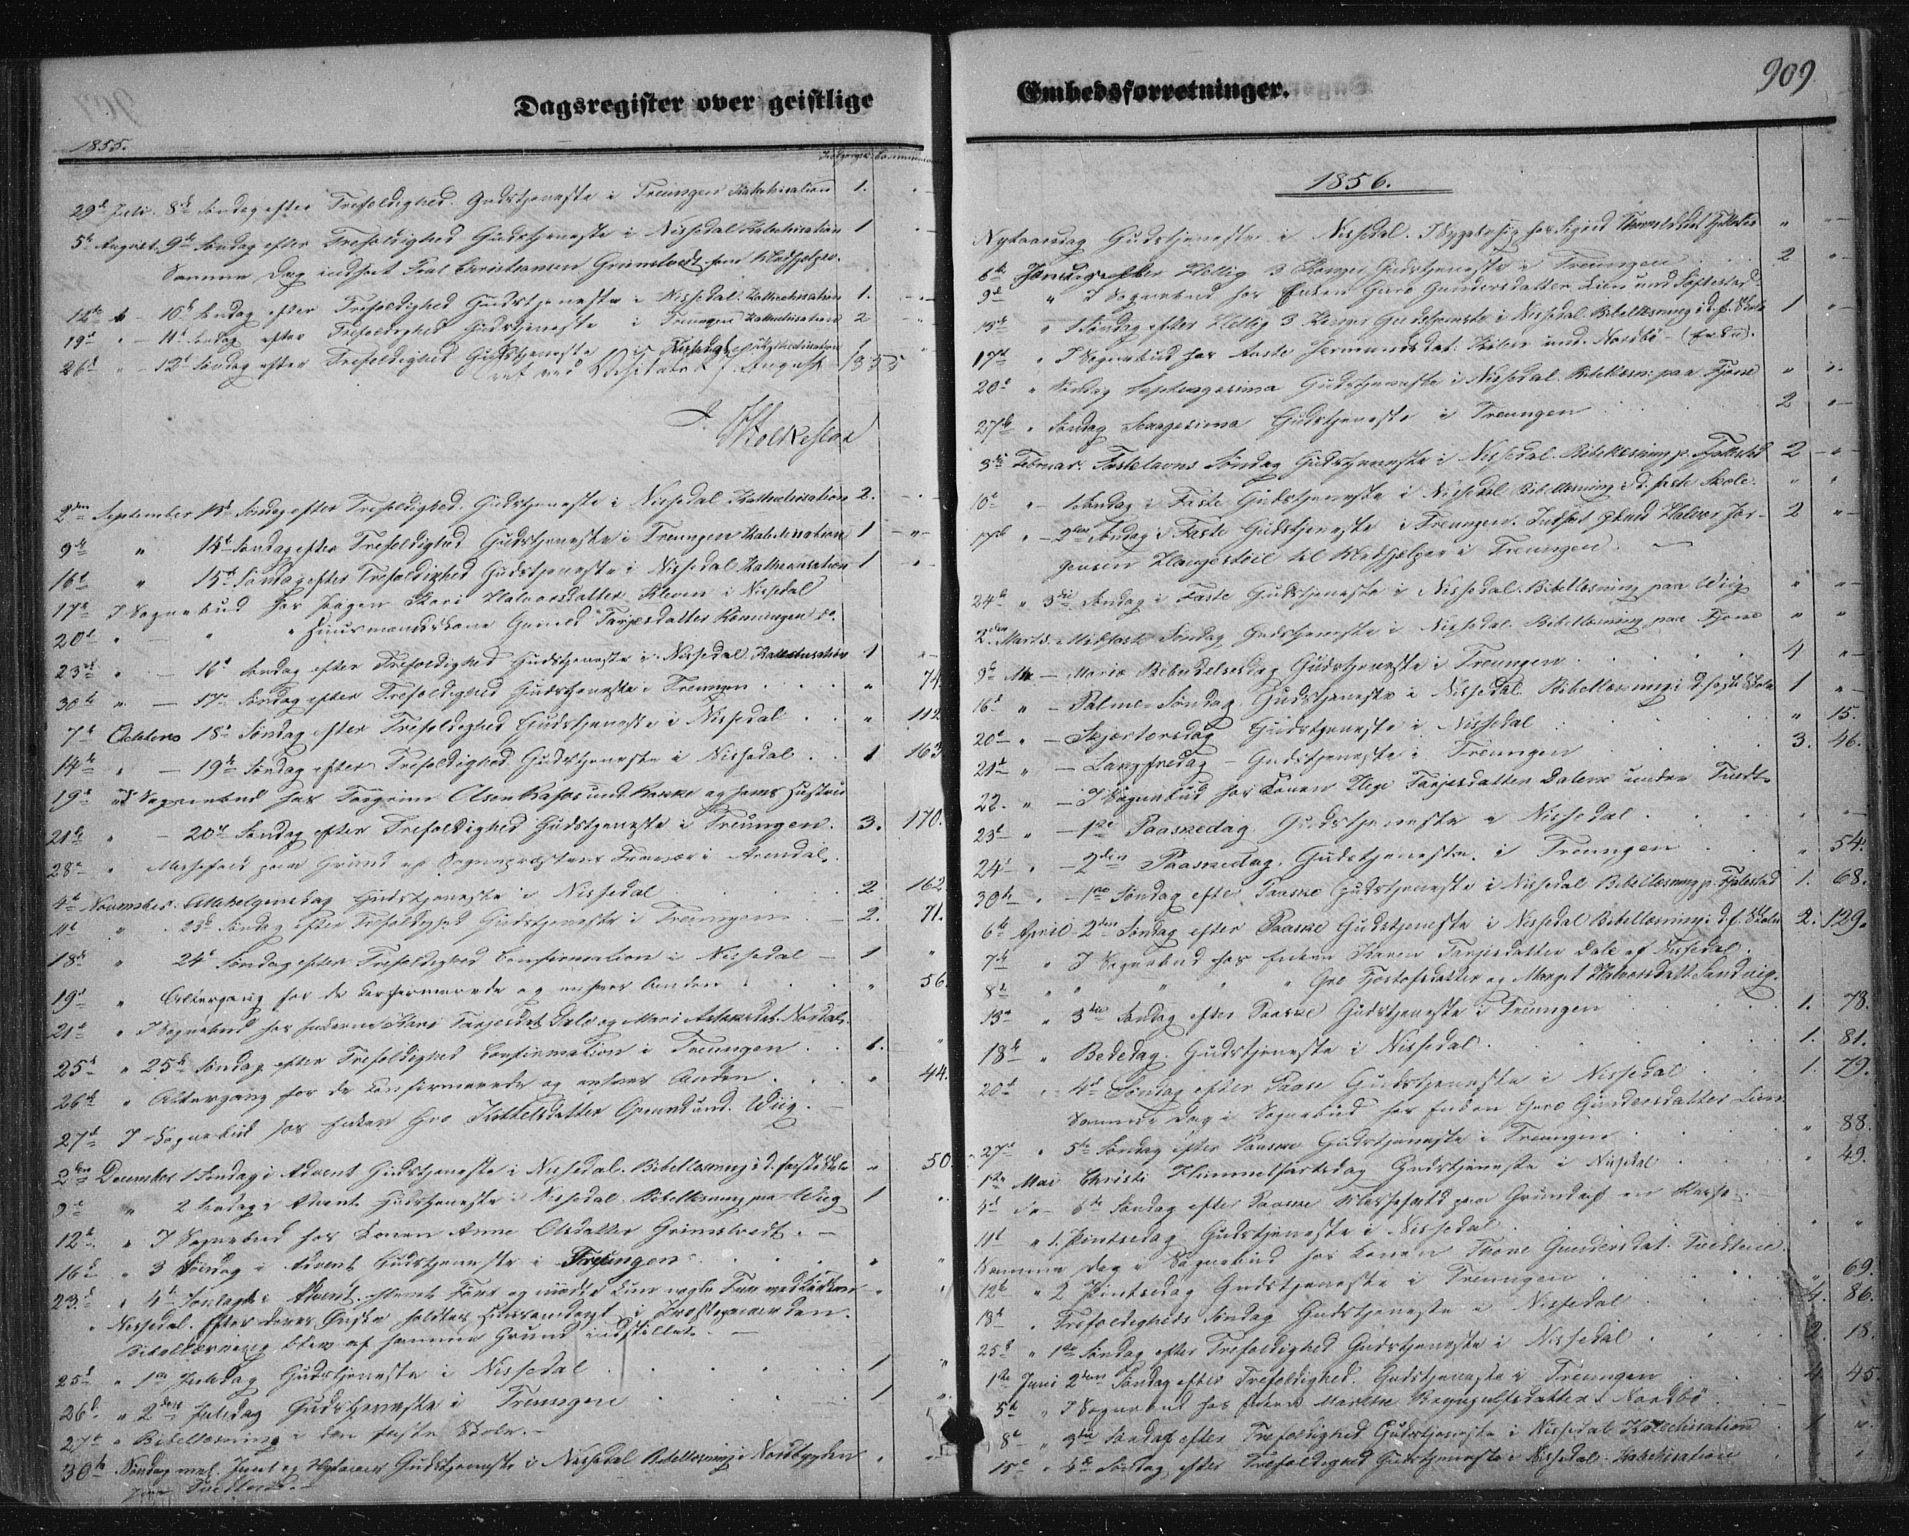 Dagsregister over geistlige
1855.
29d Juli. 8d Søndag efter Trefoldighed. Gudstjeneste i Treungen Kathechisation 1.
5t August. 9d Søndag efter Trefoldighed Gudstjeneste i Nissedal Kathechisation 1
Samme Dag indsat Christiansen Grimstvedt som Medhjelper.
12te 10d Søndag efter Trefoldighed Gudstjeneste i Nissedal. Kathechisation 1.
19d 11d Søndag efter Trefoldighed Gudstjeneste i Treungen Kathechisation 2
26d 12t Søndag efter Trefoldighed Gudstjeneste i Nissedal Kathechisation
August 1855
2den September 13d Søndag efter Trefoldighed. Gudstjeneste i Nissedal Kathechisation 2.
9de " 14d Søndag efter Trefoldighed Gudstjeneste i Treungen Kathechisation 1
16d " 15d Søndag efter Trefoldighed Gudstjeneste i Nissedal Kathechisation 1
17d I Sognebud hos Pigen Kari Halvorsdatter Kleven i Nissedal
20d " Huusmandskone Gunild Tarjesdatter
23de 16d Søndag efter Trefoldighed Gudstjeneste i Nissedal Kathechisation 1
30te " 17de Søndag efter Trefoldighed Gudstjeneste i Treungen " 74.
7de Octbero 18d Søndag efter Trefoldighed Gudstjeneste i Nissedal " 112
14de " 19de Søndag efter Trefoldighed Gudstjeneste i Nissedal 1 163
19d I Sognebud hos Torgrim Olsen og hans Hustrue
21de " 20de Søndag efter Trefoldighed Gudstjeneste i Treungen. 3. 170.
28de " Messefald paa Grund af Sognepræstens Fravær i Arendal.
4de November. Allehelgensdag Gudstjeneste i Nissedal 2 162
11d " 23d Søndag efter Trefoldighed Gudstjeneste i Treungen 2. 71.
18de " 24d Søndag efter Trefoldighed Confirmation i Nissedal 1 "
19d " Altergang for de Confirmerede og enhver Anden " 56
21d " I Sognebud hos Enkerne Kari Tarjesdat Dale og Mari
25d " 25de Søndag efter Trefoldighed Confirmation i Treungen. 1. "
26de " Altergang for de Confirmerede og enhver Anden. " 44.
27d I Sognebud hos Enken Gro Kittelsdatter und. Wiig.
2den December 1 Søndag i Advent Gudstjeneste i Nissedal. Bibellæsning i d. faste Skole " 50.
9d " 2 Søndag i Advent Gudstjeneste i Nissedal. Bibellæsning paa Wiig 1
12te " I Sognebud hos Konen Anne Olsdatter Grimstvedt.
16d " 3 Søndag i Advent Gudstjeneste i Treungen " "
23d " 4d Søndag i Advent
Nissedal. Efter deres Ønske holdtes Huusandagt i Præstegaarden.
Bibellæsning blev af samme Grund indstillet.
25d " 1ste Juledag Gudstjeneste i Nissedal 1 "
26d " 2den Juledag Gudstjeneste i Treungen 1 "
27d " Bibellæsning i den faste Skole.
30te Søndag mel. Juul og Nytaar Gudstjeneste i Nissedal Bibellæsning i Nordbygden
Embedsforretninger.
909
1856.
Nytaarsdag Gudstjeneste i Nissedal. "
6te Januar Hellig 3 Konger Gudstjeneste i Treungen 2
9d " I Sognebud hos Enken Guro Gundersdatter Lien und
13d " 1 Søndag efter Hellig 3 Konger Gudstjeneste i Nissedal. Bibellæsning i d. f. Skole 1
17d " I Sognebud hos Aaste
20d " Søndag Septuagesima Gudstjeneste i Nissedal. Bibellæsn. paa Fjone "
27de " Søndag Sexagesima Gudstjeneste i Treungen 2
3die Februar. Fastelavns Søndag Gudstjeneste i Nissedal. Bibellæsning p. 2
10d " 1 Søndag i Faste Gudstjeneste i Nissedal Bibellæsning i d. faste Skole. "
17de " 2den Søndag i Faste Gudstjeneste i Treungen. Indsat Halvor Jør- 2
gensen til Medhjelper i Treungen.
24de " 3die Søndag i Faste Gudstjeneste i Nissedal. Bibellæsning paa Wiig "
2den Marts. Midfaste Søndag Gudstjeneste i Nissedal. Bibellæsning paa Fjone "
9de Mariæ Bebudelsesdag Gudstjeneste i Treungen. 4
16d " Palme Søndag Gudstjeneste i Nissedal. Bibellæsning i d. faste Skole 1
20d " Skjærtorsdag Gudstjeneste i Nissedal " 15.
21d " Langfredag Gudstjeneste i Treungen 3. 46.
22. " I Sognebud hos Konen Hege Tarjesdatter Dalene under
23d 1ste Paaskedag. Gudstjeneste i Nissedal
24d " 2den Paaskedag. Gudstjeneste i Treungen " 54.
30te " 1ste Søndag efter Paaske Gudstjeneste i Nissedal Bibellæsning p. 1. 68.
6te April 2den Søndag efter Paaske Gudstjeneste i Nissedal Bibellæsning i d. f. Skole 2. 129.
7de " I Sognebud hos Enken Karen Tarjesdatter Dale af Nissedal.
8d " " " " Gro og Margit Halvorsdatt. Sandvig.
13d " 3die Søndag efter Paaske Gudstjeneste i Treungen 1. 78.
18de " Bededag. Gudstjeneste i Nissedal. 1. 81.
20d " 4d Søndag efter Paaske Gudstjeneste i Nissedal 1. 79.
Samme Dag i Sognebud hos Enken Guro Gundersdatter Lien.
27de " 5te Søndag efter Paaske Gudstjeneste i Treungen " 88.
1ste Mai Christi Himmelfartsdag Gudstjeneste i Nissedal " 49.
4d 6te Søndag efter Paaske Messefald paa Grund af
11d " 1. Pintsedag Gudstjeneste i Nissedal " "
Samme Dag i Sognebud hos Konen Thone Gundersdat.
12te " 2 Pintsedag Gudstjeneste i Treungen " 69.
18d " Trefoldigheds Søndag Gudstjeneste i Nissedal 4. 86.
25d " 1ste Søndag efter Trefoldighed Gudstjeneste i Nissedal 2. 18.
1ste Juni 2den Søndag efter Trefoldighed. Gudstjeneste i Treungen 4. 45.
5te " I Sognebud hos
8de " 3die Søndag efter Trefoldighed Gudstjeneste i Nissedal Kathechisation 1
15d " 4de Søndag efter Trefoldighed Gudstjeneste i Nissedal. Kathechisation